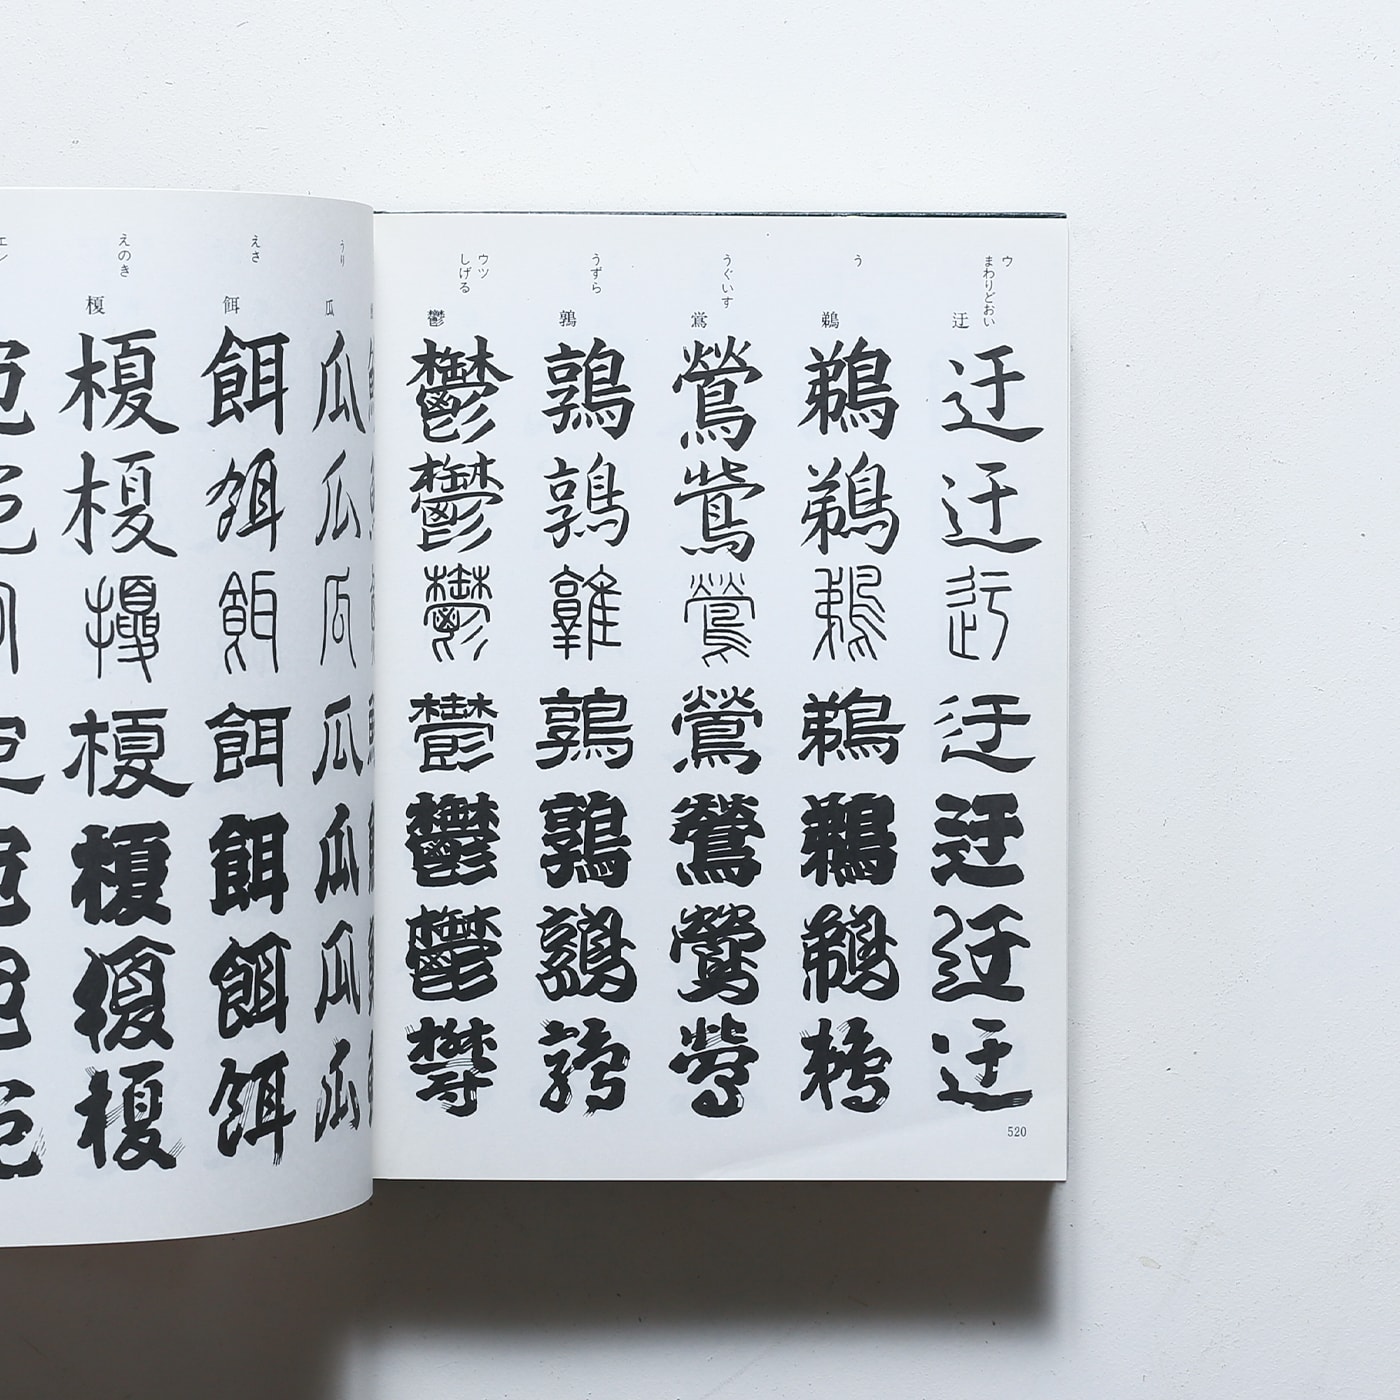 ウ
まわりどおい
迂
迂迂迂迂迂迂迂
う
鵜
鵜鵜鵜鵜鵜鵜鵜
うぐいす
鴬
鶯鴬鶯鶯鶯鶯鴬
うずら
鶉
鶉鶉鶉鶉鶉鶉鶉
ウツ
しげる
鬱
鬱鬱鬱鬱鬱鬱鬱
520
うり
瓜
瓜瓜瓜瓜瓜瓜瓜
えさ
餌
餌餌餌餌餌餌餌
えのき
榎
榎榎榎榎榎榎榎
エン